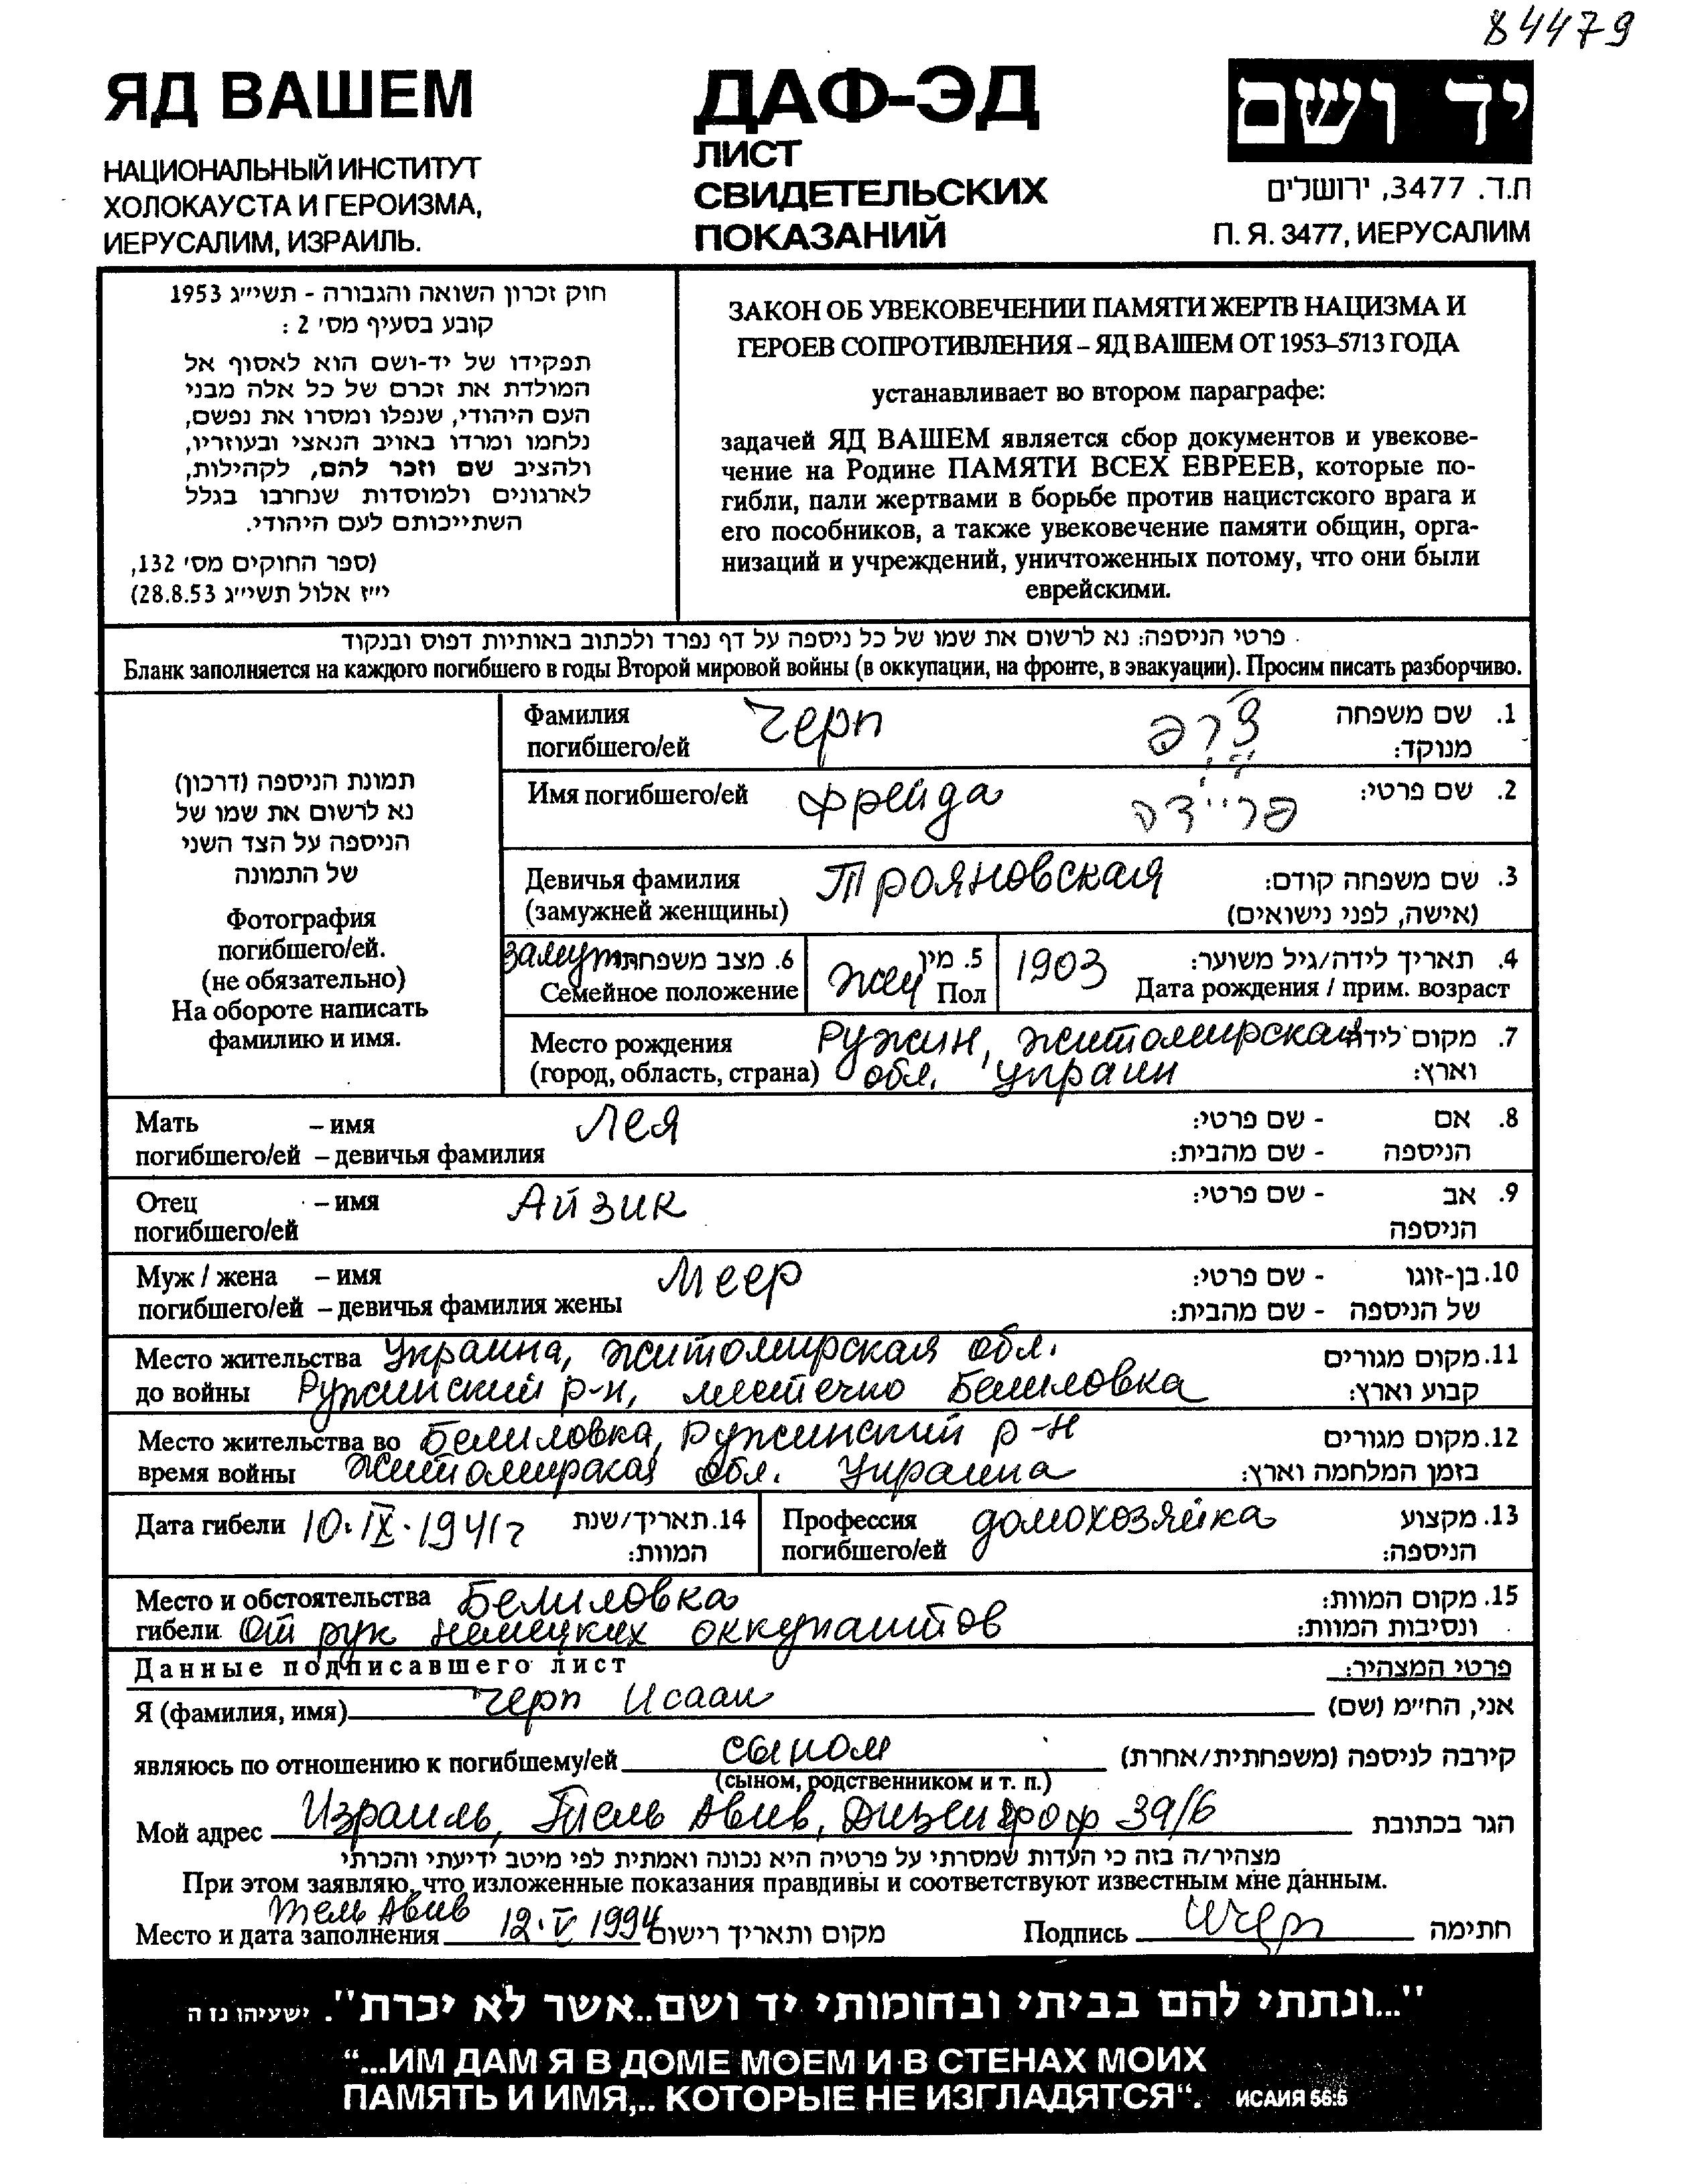 84479
ЯД ВАШЕМ
НАЦИОНАЛЬНЫЙ ИНСТИТУТ
ХОЛОКАУСТА И ГЕРОИЗМА,
ИЕРУСАЛИМ, ИЗРАИЛЬ.
ДАФ-ЭД
ЛИСТ
СВИДЕТЕЛЬСКИХ
ПОКАЗАНИЙ
יד ושם
ת.ד. 3477, ירושלים
П. Я. 3477, ИЕРУСАЛИМ
חוק זכרון השואה והגבורה - תשי״ג 1953
קובע בסעיף מס' 2 :
תפקידו של יד-ושם הוא לאסוף אל
המולדת את זכרם של כל אלה מבני
העם היהודי, שנפלו ומסרו את נפשם,
נלחמו ומרדו באויב הנאצי ובעוזריו,
ולהציב שם וזכר להם, לקהילות,
לארגונים ולמוסדות שנחרבו בגלל
השתייכותם לעם היהודי.
(ספר החוקים מס' 132,
י״ז אלול תשי״ג 28.8.53)
ЗАКОН ОБ УВЕКОВЕЧЕНИИ ПАМЯТИ ЖЕРТВ НАЦИЗМА И
ГЕРОЕВ СОПРОТИВЛЕНИЯ – ЯД ВАШЕМ ОТ 1953–5713 ГОДА
устанавливает во втором параграфе:
задачей ЯД ВАШЕМ является сбор документов и увекове-
чение на Родине ПАМЯТИ ВСЕХ ЕВРЕЕВ, которые по-
гибли, пали жертвами в борьбе против нацистского врага и
его пособников, а также увековечение памяти общин, орга-
низаций и учреждений, уничтоженных потому, что они были
еврейскими.
פרטי הניספה: נא לרשום את שמו של כל ניספה על דף נפרד ולכתוב באותיות דפוס ובנקוד
Бланк заполняется на каждого погибшего в годы Второй мировой войны (в оккупации, на фронте, в эвакуации). Просим писать разборчиво.
תמונת הניספה (דרכון)
נא לרשום את שמו של
הניספה על הצד השני
של התמונה
Фотография
погибшего/ей.
(не обязательно)
На обороте написать
фамилию и имя.
Фамилия Черп צ'רפ 1. שם משפחה
погибшего/ей מנוקד:
Имя погибшего/ей Фрейда פריידה 2. שם פרטי:
Девичья фамилия Трояновская 3. שם משפחה קודם:
(замужней женщины) (אישה, לפני נישואים)
замуж 6. מצב משפחתי 5. מין 1903 4. תאריך לידה/גיל משוער:
Семейное положение жен Пол Дата рождения / прим. возраст
Место рождения Ружин, Житомирская 7. מקום לידה
(город, область, страна) обл. Украин וארץ:
Мать – имя Лея 8. אם - שם פרטי:
погибшего/ей – девичья фамилия הניספה - שם מהבית:
Отец – имя Айзик 9. אב - שם פרטי:
погибшего/ей הניספה
Муж / жена – имя Меер 10. בן-זוגו - שם פרטי:
погибшего/ей – девичья фамилия жены של הניספה - שם מהבית:
Место жительства Украина, Житомирская обл. 11. מקום מגורים
до войны Ружинский р-н, местечко Белиловка קבוע וארץ:
Место жительства во Белиловка, Ружинский р-н 12. מקום מגורים
время войны Житомирская обл. Украина בזמן המלחמה וארץ:
Дата гибели 10.IX.1941г 14. תאריך/שנת Профессия домохозяйка 13. מקצוע
המוות: погибшего/ей הניספה:
Место и обстоятельства Белиловка 15. מקום המוות:
гибели От рук немецких оккупантов ונסיבות המוות:
Данные подписавшего лист פרטי המצהיר:
Я (фамилия, имя) Черп Исаак אני, הח״מ (שם)
являюсь по отношению к погибшему/ей сыном קירבה לניספה (משפחתית/אחרת)
(сыном, родственником и т. п.)
Мой адрес Израиль, Тель Авив, Дизенгроф 39/6 הגר בכתובת
מצהיר/ה בזה כי העדות שמסרתי על פרטיה היא נכונה ואמתית לפי מיטב ידיעתי והכרתי
При этом заявляю, что изложенные показания правдивы и соответствуют известным мне данным.
Место и дата заполнения Тель Авив 12.V 1994 מקום ותאריך רישום Подпись ИЧерп חתימה
"...ונתתי להם בביתי ובחומותי יד ושם..אשר לא יכרת". ישעיהו נז ה
“...ИМ ДАМ Я В ДОМЕ МОЕМ И В СТЕНАХ МОИХ
ПАМЯТЬ И ИМЯ,.. КОТОРЫЕ НЕ ИЗГЛАДЯТСЯ“. ИСАИЯ 56:5